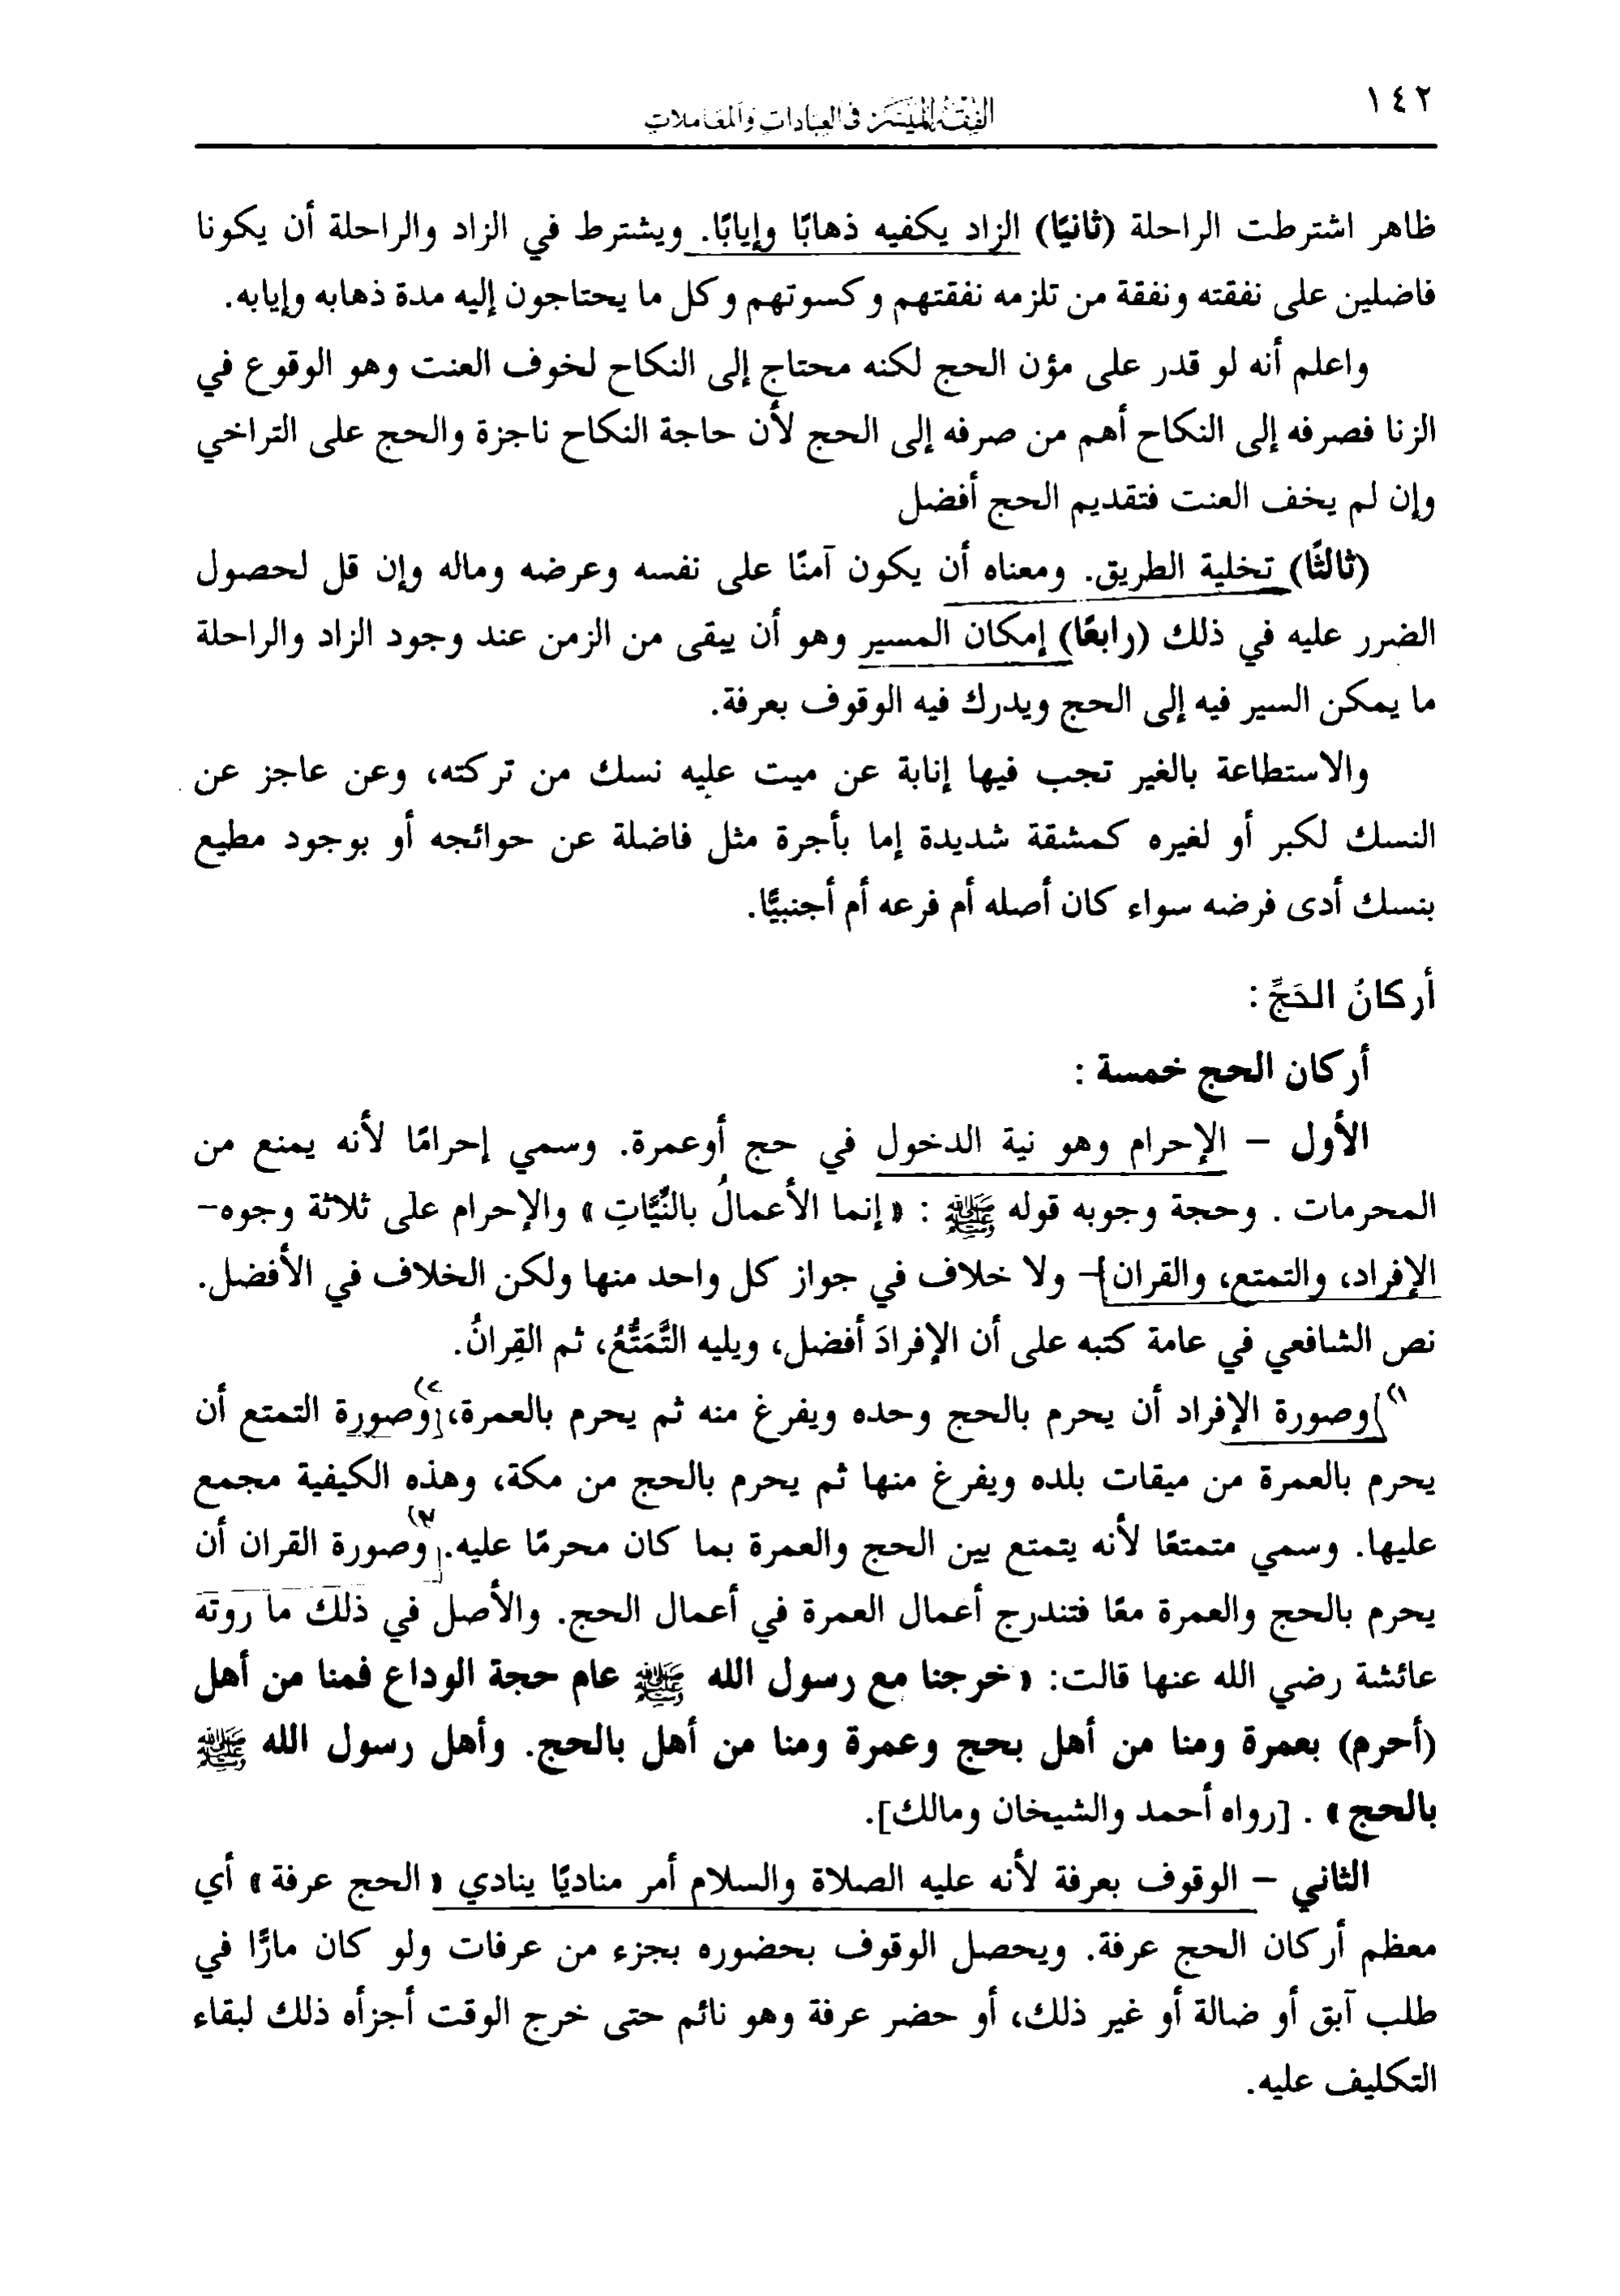 ١٤٢
الفقه الميسر في العبادات والمعاملات
ظاهر اشترطت الراحلة (ثانيًا) الزاد يكفيه ذهابًا وإيابًا. ويشترط في الزاد والراحلة أن يكونا
فاضلين على نفقته ونفقة من تلزمه نفقتهم وكسوتهم وكل ما يحتاجون إليه مدة ذهابه وإيابه.
واعلم أنه لو قدر على مؤن الحج لكنه محتاج إلى النكاح لخوف العنت وهو الوقوع في
الزنا فصرفه إلى النكاح أهم من صرفه إلى الحج لأن حاجة النكاح ناجزة والحج على التراخي
وإن لم يخف العنت فتقديم الحج أفضل
(ثالثًا) تخلية الطريق. ومعناه أن يكون آمنًا على نفسه وعرضه وماله وإن قل لحصول
الضرر عليه في ذلك (رابعًا) إمكان المسير وهو أن يبقى من الزمن عند وجود الزاد والراحلة
ما يمكن السير فيه إلى الحج ويدرك فيه الوقوف بعرفة.
والاستطاعة بالغير تجب فيها إنابة عن ميت عليه نسك من تركته، وعن عاجز عن
النسك لكبر أو لغيره كمشقة شديدة إما بأجرة مثل فاضلة عن حوائجه أو بوجود مطيع
بنسك أدى فرضه سواء كان أصله أم فرعه أم أجنبيًّا.
أركانُ الحَجِّ :
أركان الحج خمسة :
الأول – الإحرام وهو نية الدخول في حج أوعمرة. وسمي إحرامًا لأنه يمنع من
المحرمات . وحجة وجوبه قوله ﷺ : « إنما الأعمالُ بالنِّيَّاتِ » والإحرام على ثلاثة وجوه–
الإفراد، والتمتع، والقران – ولا خلاف في جواز كل واحد منها ولكن الخلاف في الأفضل.
نص الشافعي في عامة كتبه على أن الإفرادَ أفضل، ويليه التَّمَتُّعُ، ثم القِرانُ.
١) وصورة الإفراد أن يحرم بالحج وحده ويفرغ منه ثم يحرم بالعمرة، ٢) وصورة التمتع أن
يحرم بالعمرة من ميقات بلده ويفرغ منها ثم يحرم بالحج من مكة، وهذه الكيفية مجمع
عليها. وسمي متمتعًا لأنه يتمتع بين الحج والعمرة بما كان محرمًا عليه. ٣) وصورة القران أن
يحرم بالحج والعمرة معًا فتندرج أعمال العمرة في أعمال الحج. والأصل في ذلك ما روته
عائشة رضي الله عنها قالت: « خرجنا مع رسول الله ﷺ عام حجة الوداع فمنا من أهل
(أحرم) بعمرة ومنا من أهل بحج وعمرة ومنا من أهل بالحج. وأهل رسول الله ﷺ
بالحج » . [رواه أحمد والشيخان ومالك].
الثاني – الوقوف بعرفة لأنه عليه الصلاة والسلام أمر مناديًا ينادي « الحج عرفة » أي
معظم أركان الحج عرفة. ويحصل الوقوف بحضوره بجزء من عرفات ولو كان مارًّا في
طلب آبق أو ضالة أو غير ذلك، أو حضر عرفة وهو نائم حتى خرج الوقت أجزأه ذلك لبقاء
التكليف عليه.